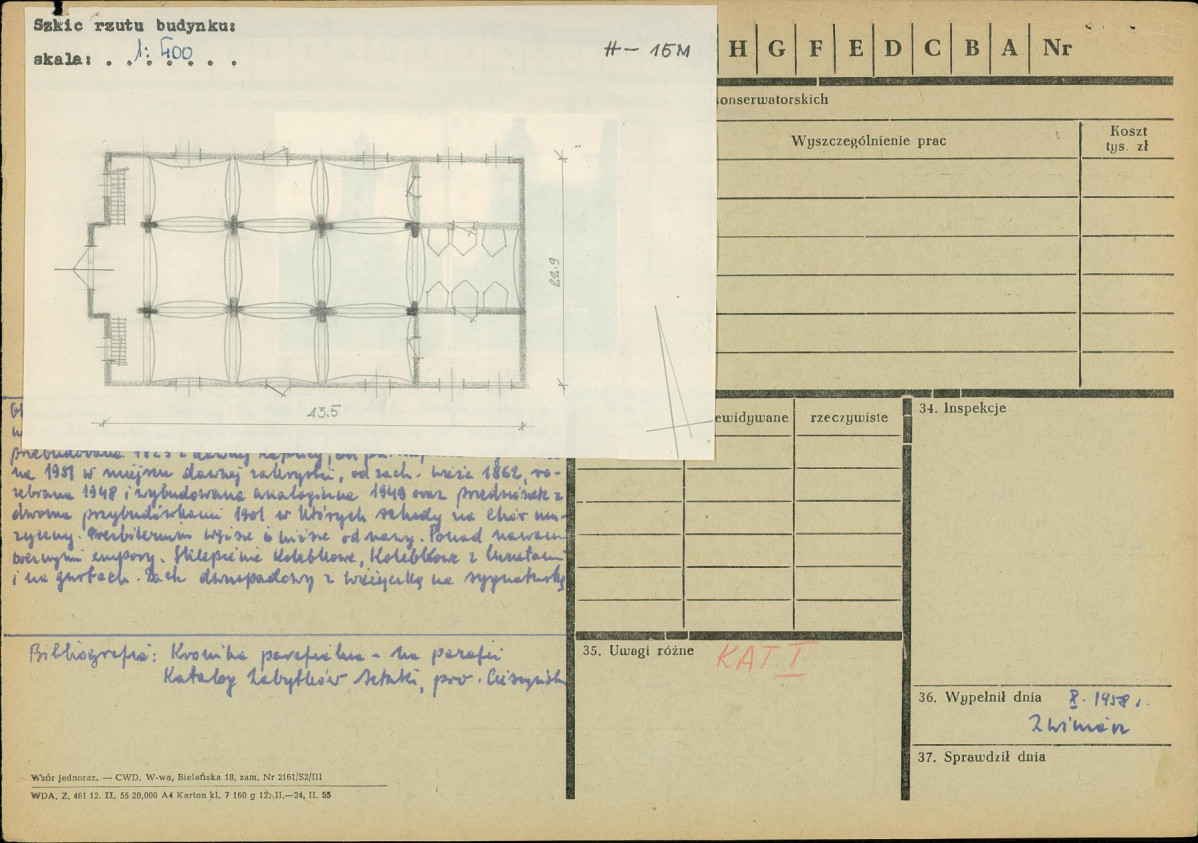 Szkic rzutu budynku:
skala: 1:400
H – 15M
H G F E D C B A Nr
onserwatorskich
Wyszczególnienie prac
Koszt
tys. zł
22.9
43.5
przebudowana 1825 z dawnej kaplicy, od
na 1951 w miejscu dawnej zakrystii, od zach. wieża 1862, ro-
zebrana 1948 i wybudowana analogiczna 1949 oraz przedsionek z
dwoma przybudówkami 1901 w których schody na chór mu-
zyczny. Prezbiterium węższe i niższe od nawy. Ponad nawami
bocznymi empory. Sklepienie kolebkowe, kolebkowe z lunetami
i na gurtach. Dach dwuspadowy z wieżyczką na sygnaturkę
ewidywane
rzeczywiste
34. Inspekcje
Bibliografia: Kronika parafialna – na parafii
Katalog Zabytków Sztuki, pow. Cieszyński
35. Uwagi różne KAT I
36. Wypełnił dnia X. 1958 r.
37. Sprawdził dnia
Wzór jednoraz. — CWD, W-wa, Bielańska 18, zam. Nr 2161/S2/III
WDA. Z. 461 12. II. 55 20,000 A4 Karton kl. 7 160 g 12. II.—24, II. 55